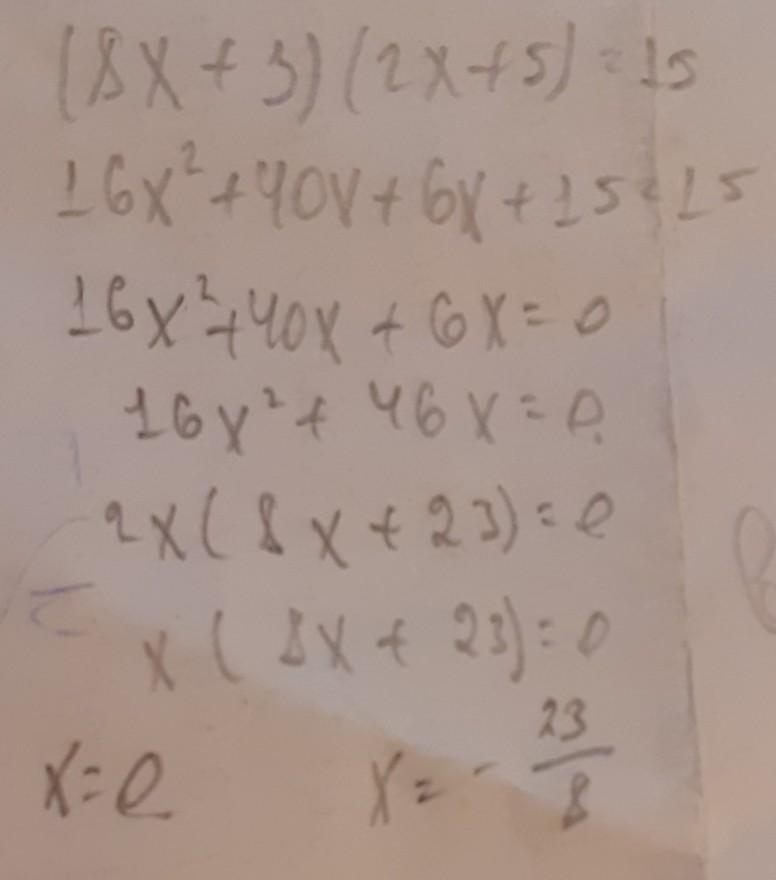 (8x + 3)(2x + 5) = 15
16x² + 40x + 6x + 15 = 15
16x² + 40x + 6x = 0
16x² + 46x = 0
2x(8x + 23) = 0
x(8x + 23) = 0
x = 0 x = - 23/8